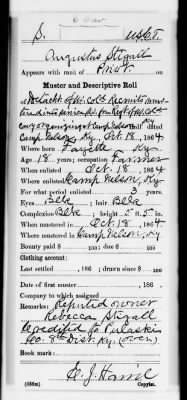 6 Cav
S. USCT.
Augustus Stigall
Appears with rank of Privt.
Muster and Descriptive Roll
of Detacht of U.S. Cold Recruits mus-
tered into service
dated
Camp Nelson, Ky. Oct. 18, 1864.
Where born Fayette Ky.
Age 18 years; occupation Farmer
When enlisted Oct. 18, 1864
Where enlisted Camp Nelson, Ky.
For what period enlisted 3 years.
Eyes Blk; hair Blk
Complexion Blk; height 5 ft. 5 in.
When mustered in Oct. 18, 1864.
Where mustered in Camp Nelson, Ky
Bounty paid $ 100; due $ 100
Clothing account:
Last settled , 186 ; drawn since $ 100
Date of first muster , 186
Company to which assigned
Remarks: Reputed owner
Rebecca Stigall
Credited to Pulaski
Co. 8th Dist. Ky. (over)
Book mark:
(356m) Copyist.